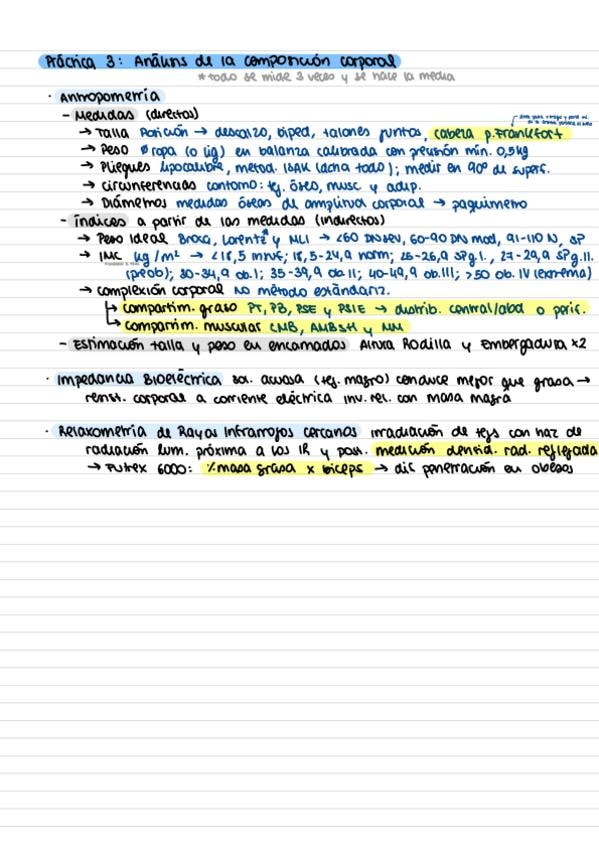 Práctica 3: Análisis de la composición corporal
*todo se mide 3 veces y se hace la media
· Antropometría
- Medidas (directas)
→ Talla Posición → descalzo, biped, talones juntos, cabeza p. Frankfort
→ Peso Ø ropa (o lig) en balanza calibrada con precisión mín. 0,5kg
→ Pliegues lipocalibre, metod. ISAK (dcha todo); medir en 90º de superf.
→ Circunferencias contorno: tej. óseo, musc y adip.
→ Diámetros medidas óseas de amplitud corporal → paquímetro
- Índices a partir de las medidas (indirectos)
→ Peso Ideal Broca, Lorentz y MLI → <60 DN sev, 60-90 DN mod, 91-110 N, SP
→ IMC kg/m² → <18,5 insuf; 18,5-24,9 norm; 25-26,9 SPg.I., 27-29,9 SPg.II.
(preob); 30-34,9 ob.I; 35-39,9 ob II; 40-49,9 ob.III; >50 ob. IV (extrema)
→ complexión corporal No método estándariz.
↳ compartim. graso PT, PB, PSE y PSIE → distrib. central/abd o perif.
↳ compartim. muscular CMB, AMBstt y MM
- Estimación talla y peso en encamados Altura Rodilla y Embergadura x2
· Impedancia Bioeléctrica sol. acuosa (tej. magro) conduce mejor que grasa →
resist. corporal a corriente eléctrica inv. rel. con masa magra
· Relaxometría de Rayos Infrarrojos cercanos irradiación de tejs con haz de
radiación lum. próxima a los IR y post. medición densid. rad. reflejada
→ Futrex 6000: % masa grasa x biceps → dif penetración en obesos